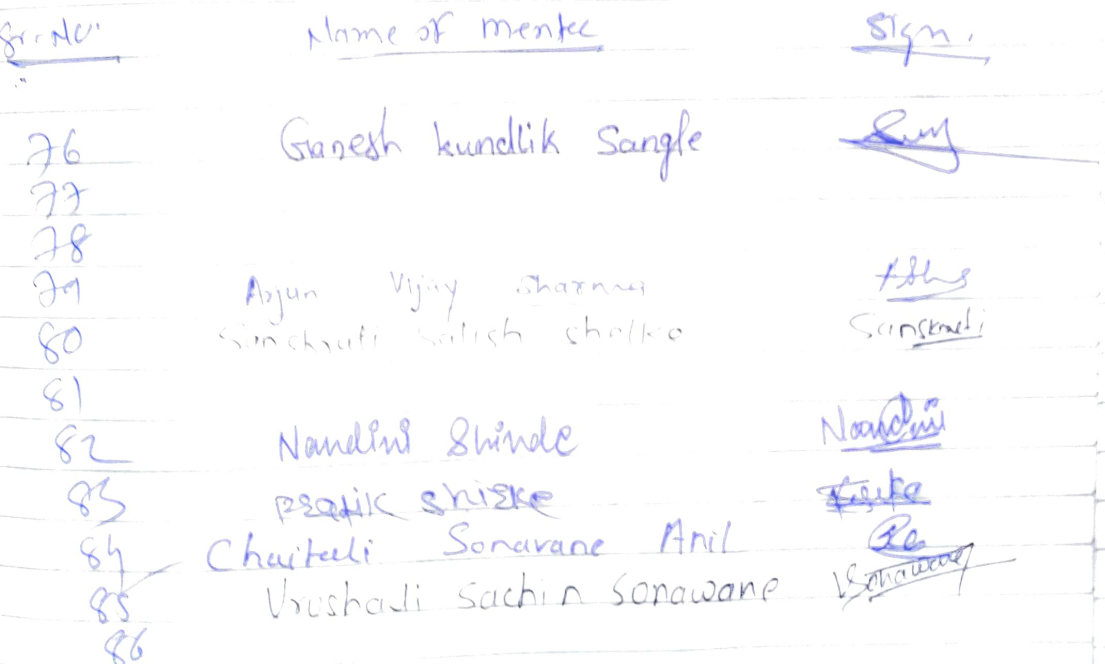 Sr. No. Name of mentee Sign.
76 Ganesh kundlik Sangle
77
78
79 Arjun Vijay Sharma
80 Sanskruti Satish Shelke Sanskruti
81
82 Nandini Shinde Nandini
83 pratik shirke Shirke
84 Chaitali Sonavane Anil
85 Vrushali Sachin Sonawane VSonawane
86